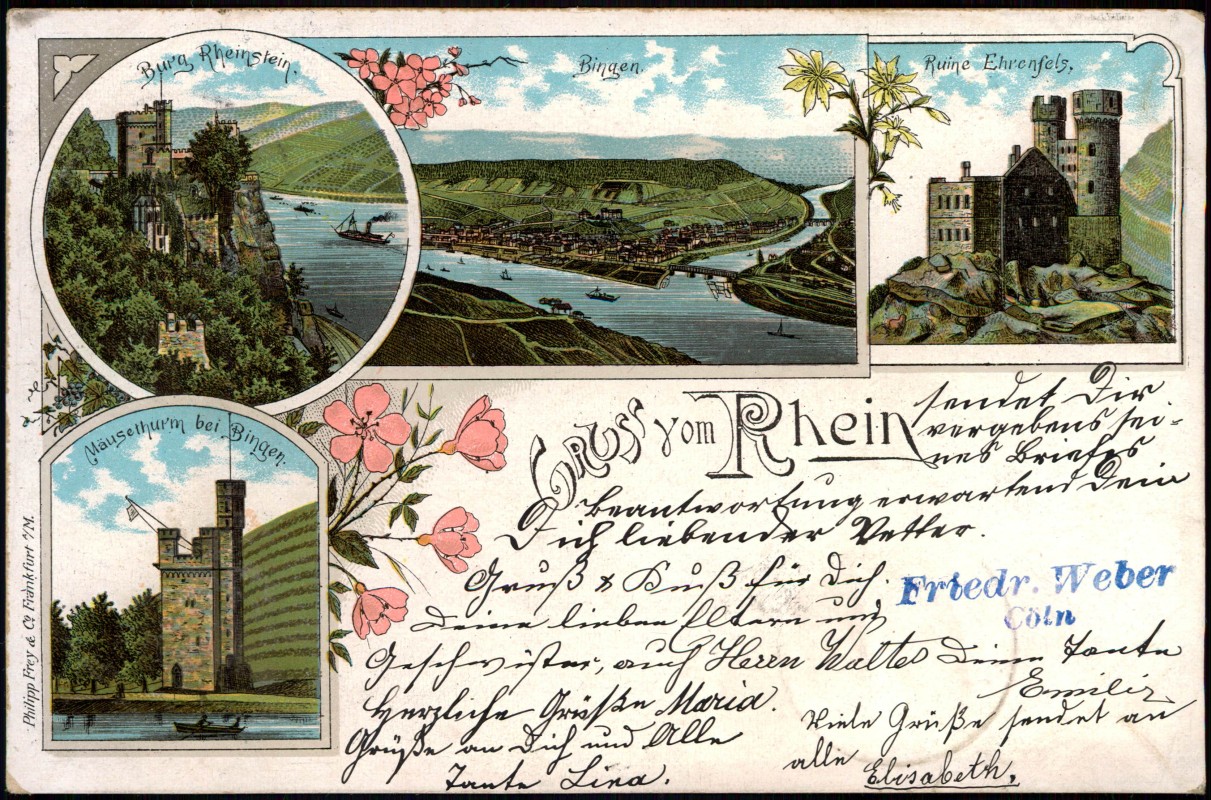 Burg Rheinstein.
Bingen.
Ruine Ehrenfels.
Mäusethurm bei Bingen.
Gruss vom Rhein
sendet Dir
vergebens sei-
nes Briefes
Beantwortung erwartend Dein
Dich liebender Vetter.
Friedr. Weber
Cöln
Gruß & Kuß für Dich.
Deine lieben Eltern und
Geschwister, auch Herrn Walter Deine Tante
Emilie
Herzliche Grüße Maria.
Viele Grüße sendet an
alle Elisabeth.
Grüße an Dich und Alle
Tante Lina.
Philipp Frey & Co. Frankfurt a/M.